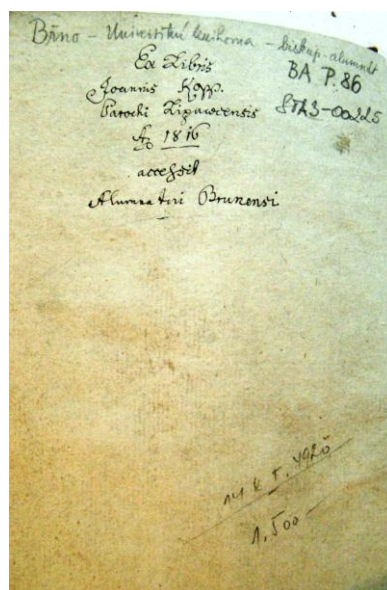 Brno - Universitní knihovna - biskup. alumnát
BA P. 86
ST A3-00225
Ex Libris
Joannis Kopp.
Parochi Lipuwcensis
Ao 1816
accessit
Alumnatui Brunensi
1920
1.500-